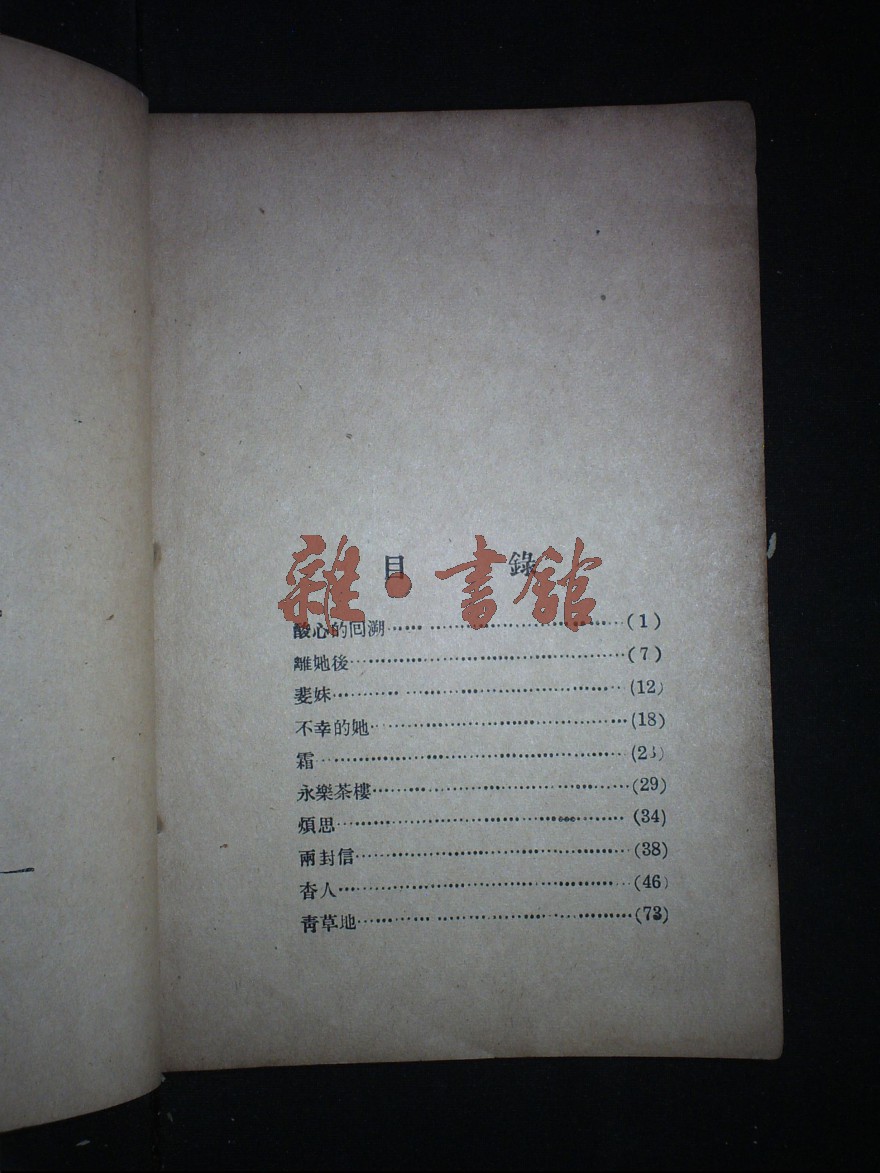 目 錄
雜·書館
酸心的回溯(1)
離她後(7)
婓妹(12)
不幸的她(18)
霜
永樂茶樓(29)
煩思(34)
兩封信(38)
杳人(46)
靑草地(73)